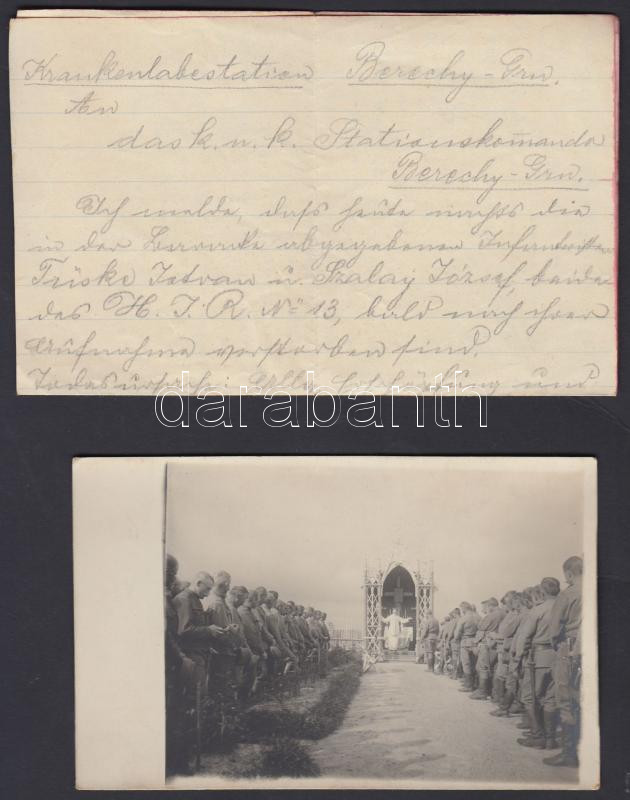 Krankenlabestation Berechy-Grn.
An
das k. u. k. Stationskom̄ando
Berechy-Grn.
Ich melde, daſs heute nachts die
in der Baracke abgegebenen Infanteristen
Trüske Istvan u. Szalay József, beide
des H. I. R. No 13, bald nach ihrer
Aufnahme verstorben sind.
Todesursache: Allg. und
darabanth